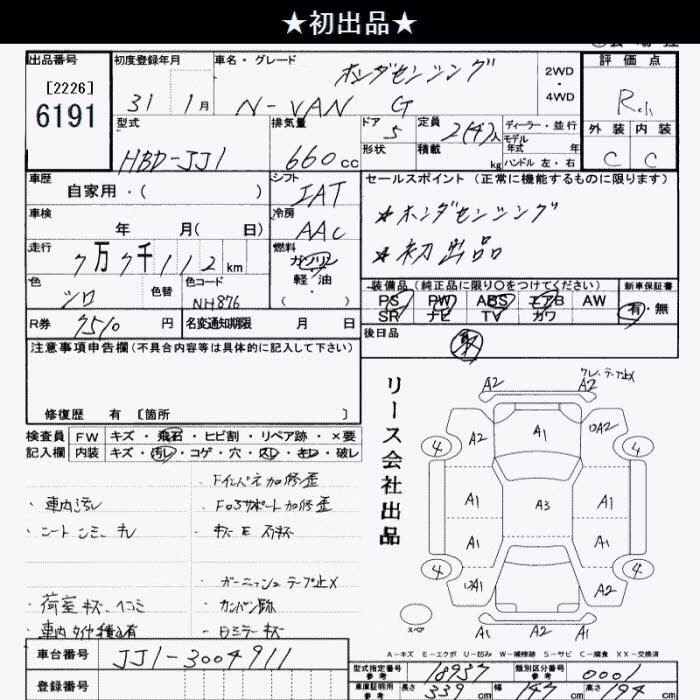 ★初出品★
出品番号 初度登録年月 車名・グレード ホンダセンシング 2WD ・ 4WD 評価点
[2226]
6191 31 1月 N-VAN G R
型式 排気量 ドア 5 定員 2(4)人 ディーラー・並行 外装 内装
HBD-JJ1 660cc 形状 積載 kg モデル年式 年 ハンドル 左・右 C C
車歴 シフト セールスポイント(正常に機能するものに限ります)
自家用・( ) IAT
車検 冷房 ★ホンダセンシング
年 月( 日) AAC
走行 燃料 ★初出品
7万7千112km ガソリン
色 色替 色コード 軽油 装備品(純正品に限り○をつけてください) 新車保証書
シロ NH876 ( ) PS PW ABS エアB AW 有・無
SR ナビ TV カワ
R券 7510円 名変通知期限 月 日 後日品
注意事項申告欄(不具合内容等は具体的に記入して下さい)
修復歴 有 〔箇所 〕
検査員 FW キズ・飛石・ヒビ割・リペア跡・×要
記入欄 内装 キズ・汚レ・コゲ・穴・スレ・キレ・破レ
・Fインパネ加修歪
・車内汚レ
・キズ E
・ガーニッシュ テープ止×
・荷室キズ、ヘコミ ・カンバン跡
・ドミラーキズ
リース会社出品
A2 A2 テープ止×
4 A2 A1 A2 4
A1 A3 A1
A1 A1
4 A1 A2 4
スペア A1 A2 A1
A-キズ E-エクボ U-凹み W-補修跡 S-サビ C-腐食 XX-交換済
車台番号 JJ1-3004911
登録番号
型式指定番号 参考 18937 類別区分番号 参考 0001
車庫証明用 参考 長さ 339cm 幅 147cm 高さ 194cm